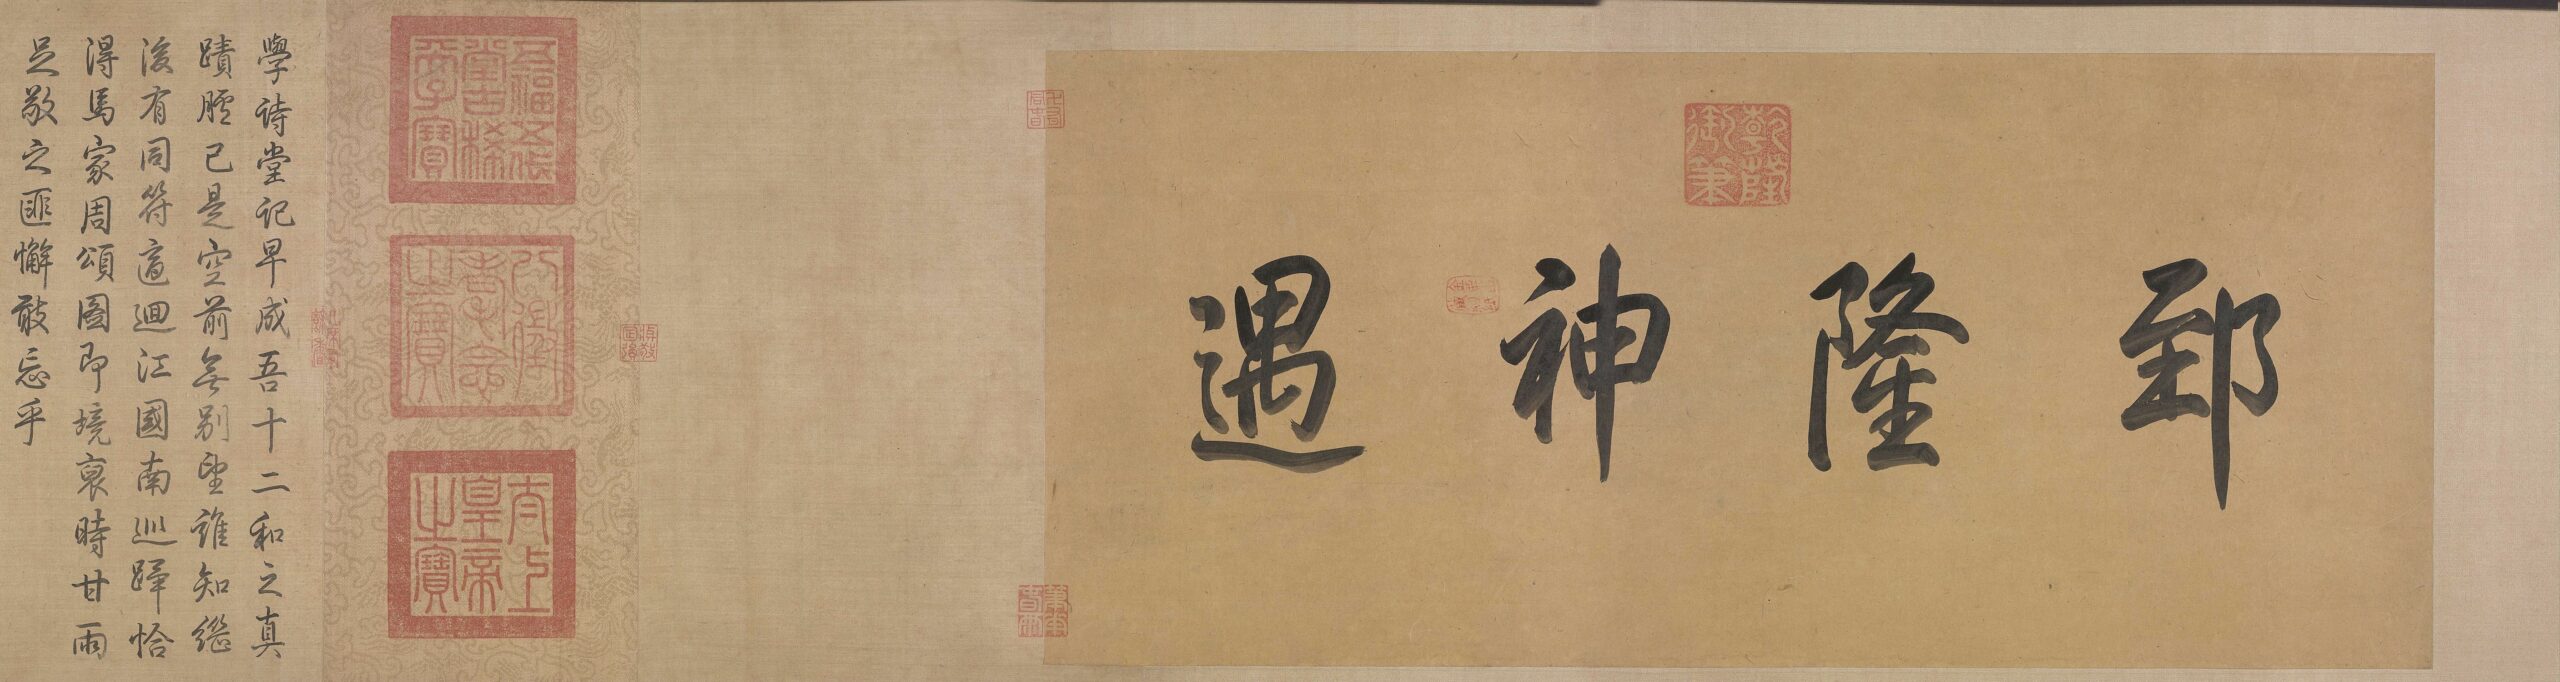 乾隆御筆
郅隆神遇
五福五代堂古稀天子寶
八徵耄念之寶
太上皇帝之寶
學詩堂記早成吾十二和之真
蹟臚已是空前無别望誰知繼
後有同符適迴江國南巡蹕恰
得馬家周頌圖即境裒時甘雨
足敬之匪懈敢忘乎